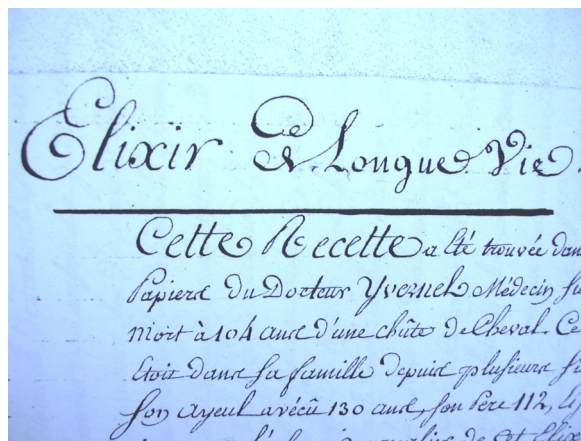 Elixir de Longue Vie.
Cette Recette a été trouvée dan
Papiers du Docteur Yvernel Médecin su
mort à 104 ans d'une chûte de Cheval. Ce
étoit dans sa famille depuis plusieurs si
son ayeul a vécû 130 ans, son Pere 112,